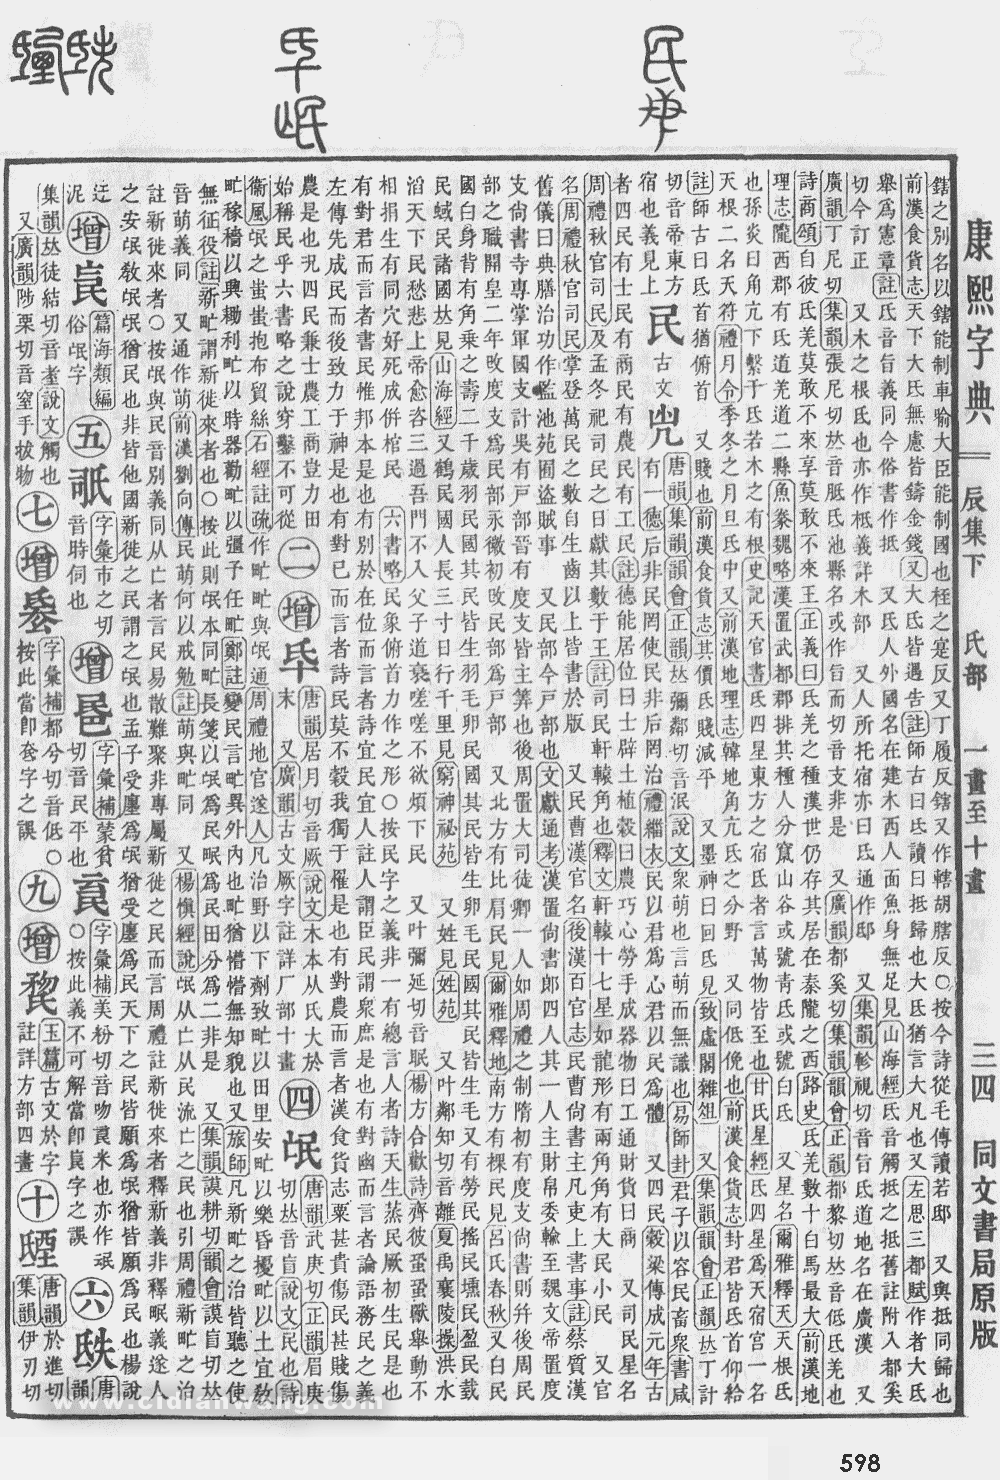 康熙字典 辰集下 氏部 一畫至十畫 三四 同文書局原版
鎋之別名以鎋能制車喻大臣能制國也桎之寔反又丁履反鎋又作轄胡瞎反○按今詩從毛傳讀若邸 又與抵同歸也
前漢食貨志天下大氐無慮皆鑄金錢又大氐皆遇告註師古曰氐讀曰抵歸也大氐猶言大凡也又左思三都賦作者大氐
舉爲憲章註氐音旨義同今俗書作抵 又氐人外國名在建木西人面魚身無足見山海經氐音觸抵之抵舊註附入都奚
切今訂正 又木之根氐也亦作柢義詳木部 又人所托宿亦曰氐通作邸 又集韻軫視切音旨氐道地名在廣漢 又
廣韻丁尼切集韻張尼切𠀤音胝氐池縣名或作旨而切音支非是 又廣韻都奚切集韻韻會正韻都黎切𠀤音低氐羌也
詩商頌自彼氐羌莫敢不來享莫敢不來王正義曰氐羌之種漢世仍存其居在秦隴之西路史氐羌數十白馬最大前漢地
理志隴西郡有氐道羌道二縣魚豢魏略漢置武都郡排其種人分竄山谷或號靑氐或號白氐 又星名爾雅釋天天根氐
也孫炎曰角亢下繫于氐若木之有根史記天官書氐四星東方之宿氐者言萬物皆至也甘氏星經氐四星爲天宿宮一名
天根二名天符禮月令季冬之月旦氐中又前漢地理志韓地角亢氐之分野 又同低俛也前漢食貨志封君皆氐首仰給
註師古曰氐首猶俯首 又賤也前漢食貨志其價氐賤減平 又墨神曰回氐見致虛閣雜俎 又集韻韻會正韻𠀤丁計
切音帝東方宿也義見上 民 古文𠘽 唐韻集韻韻會正韻𠀤彌鄰切音泯說文衆萌也言萌而無識也易師卦君子以容民畜衆書咸
有一德后非民罔使民非后罔治禮緇衣民以君爲心君以民爲體 又四民穀梁傳成元年古
者四民有士民有商民有農民有工民註德能居位曰士辟土植穀曰農巧心勞手成器物曰工通財貨曰商 又司民星名
周禮秋官司民及孟冬祀司民之日獻其數于王註司民軒轅角也釋文軒轅十七星如龍形有兩角角有大民小民 又官
名周禮秋官司民掌登萬民之數自生齒以上皆書於版 又民曹漢官名後漢百官志民曹尙書主凡吏上書事註蔡質漢
舊儀曰典膳治功作監池苑囿盜賊事 又民部今戸部也文獻通考漢置尙書郎四人其一人主財帛委輸至魏文帝置度
支尙書寺專掌軍國支計吳有戸部晉有度支皆主筭也後周置大司徒卿一人如周禮之制隋初有度支尙書則幷後周民
部之職開皇二年攺度支爲民部永徽初攺民部爲戸部 又北方有比肩民見爾雅釋地南方有裸民見呂氏春秋又白民
國白身背有角乗之壽二千歲羽民國其民皆生羽毛卵民國其民皆生卵毛民國其民皆生毛又有勞民搖民壎民盈民臷
民蜮民諸國𠀤見山海經又鶴民國人長三寸日行千里見窮神祕苑 又姓見姓苑 又叶鄰知切音離夏禹襄陵操洪水
滔天下民愁悲上帝愈咨三過吾門不入父子道衰嗟嗟不欲煩下民 又叶彌延切音眠楊方合歡詩齊彼蛩蛩獸舉動不
相捐生有同穴好死成倂棺民 六書略民象俯首力作之形○按民字之義非一有總言人者詩天生蒸民厥初生民是也
有對君而言者書民惟邦本是也有別於在位而言者詩宜民宜人註人謂臣民謂衆庶是也有對幽而言者論語務民之義
左傳先成民而後致力于神是也有對己而言者詩民莫不穀我獨于罹是也有對農而言者漢食貨志粟甚貴傷民甚賤傷
農是也況四民兼士農工商豈力田始稱民乎六書略之說穿鑿不可從 二 增 氒 唐韻居月切音厥說文木本从氏大於末 又廣韻古文厥字註詳厂部十畫 四 氓 唐韻武庚切正韻眉庚切𠀤音盲說文民也詩
衞風氓之蚩蚩抱布貿絲石經註疏作甿甿與氓通周禮地官遂人凡治野以下劑致甿以田里安甿以樂昏擾甿以土宜敎
甿稼穡以興耡利甿以時器勸甿以彊予任甿鄭註變民言甿異外內也甿猶懵懵無知貌也又旅師凡新甿之治皆聽之使
無征役註新甿謂新徙來者也○按此則氓本同甿長箋以氓爲民甿爲民田分爲二非是 又集韻謨耕切韻會謨盲切𠀤
音萌義同 又通作萌前漢劉向傳民萌何以戒勉註萌與甿同 又楊愼經說氓从亡从民流亡之民也引周禮新甿之治
註新徙來者○按氓與民音別義同从亡者言民易散難聚非專屬新徙之民而言周禮註新徙來者釋新義非釋甿義遂人
之安氓敎氓猶民也非皆他國新徙之民謂之氓也孟子受廛爲氓猶受廛爲民天下之民皆願爲氓猶皆願爲民也楊說
迂泥 增 俗氓字 五 秪 字彙市之切音時伺也 增 字彙補蒙貧切音民平也 字彙補美粉切音吻 六 唐韻
集韻𠀤徒結切音耊說文觸也 又廣韻陟栗切音窒手拔物 七 增 字彙補都兮切音低○按此當卽 字之譌 九 增 玉篇古文於字註詳方部四畫 十 𣱐 唐韻於進切集韻伊刃切
598